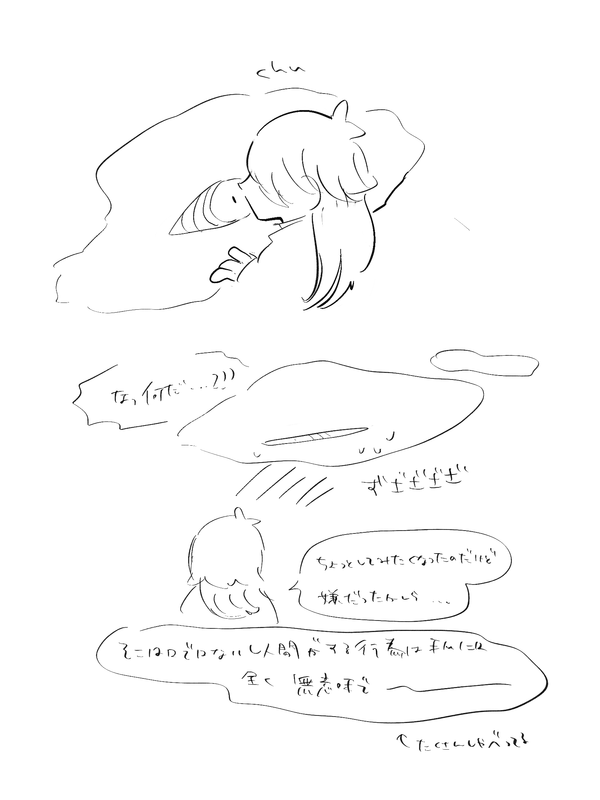 chu
なっ何だ…???
ずギギギギ
ちょっとしてみたくなったのだけど
嫌だったかしら…
そこは口で口ないし人間がする行為は私には
全く無意味で
↑たくさんしゃべってる